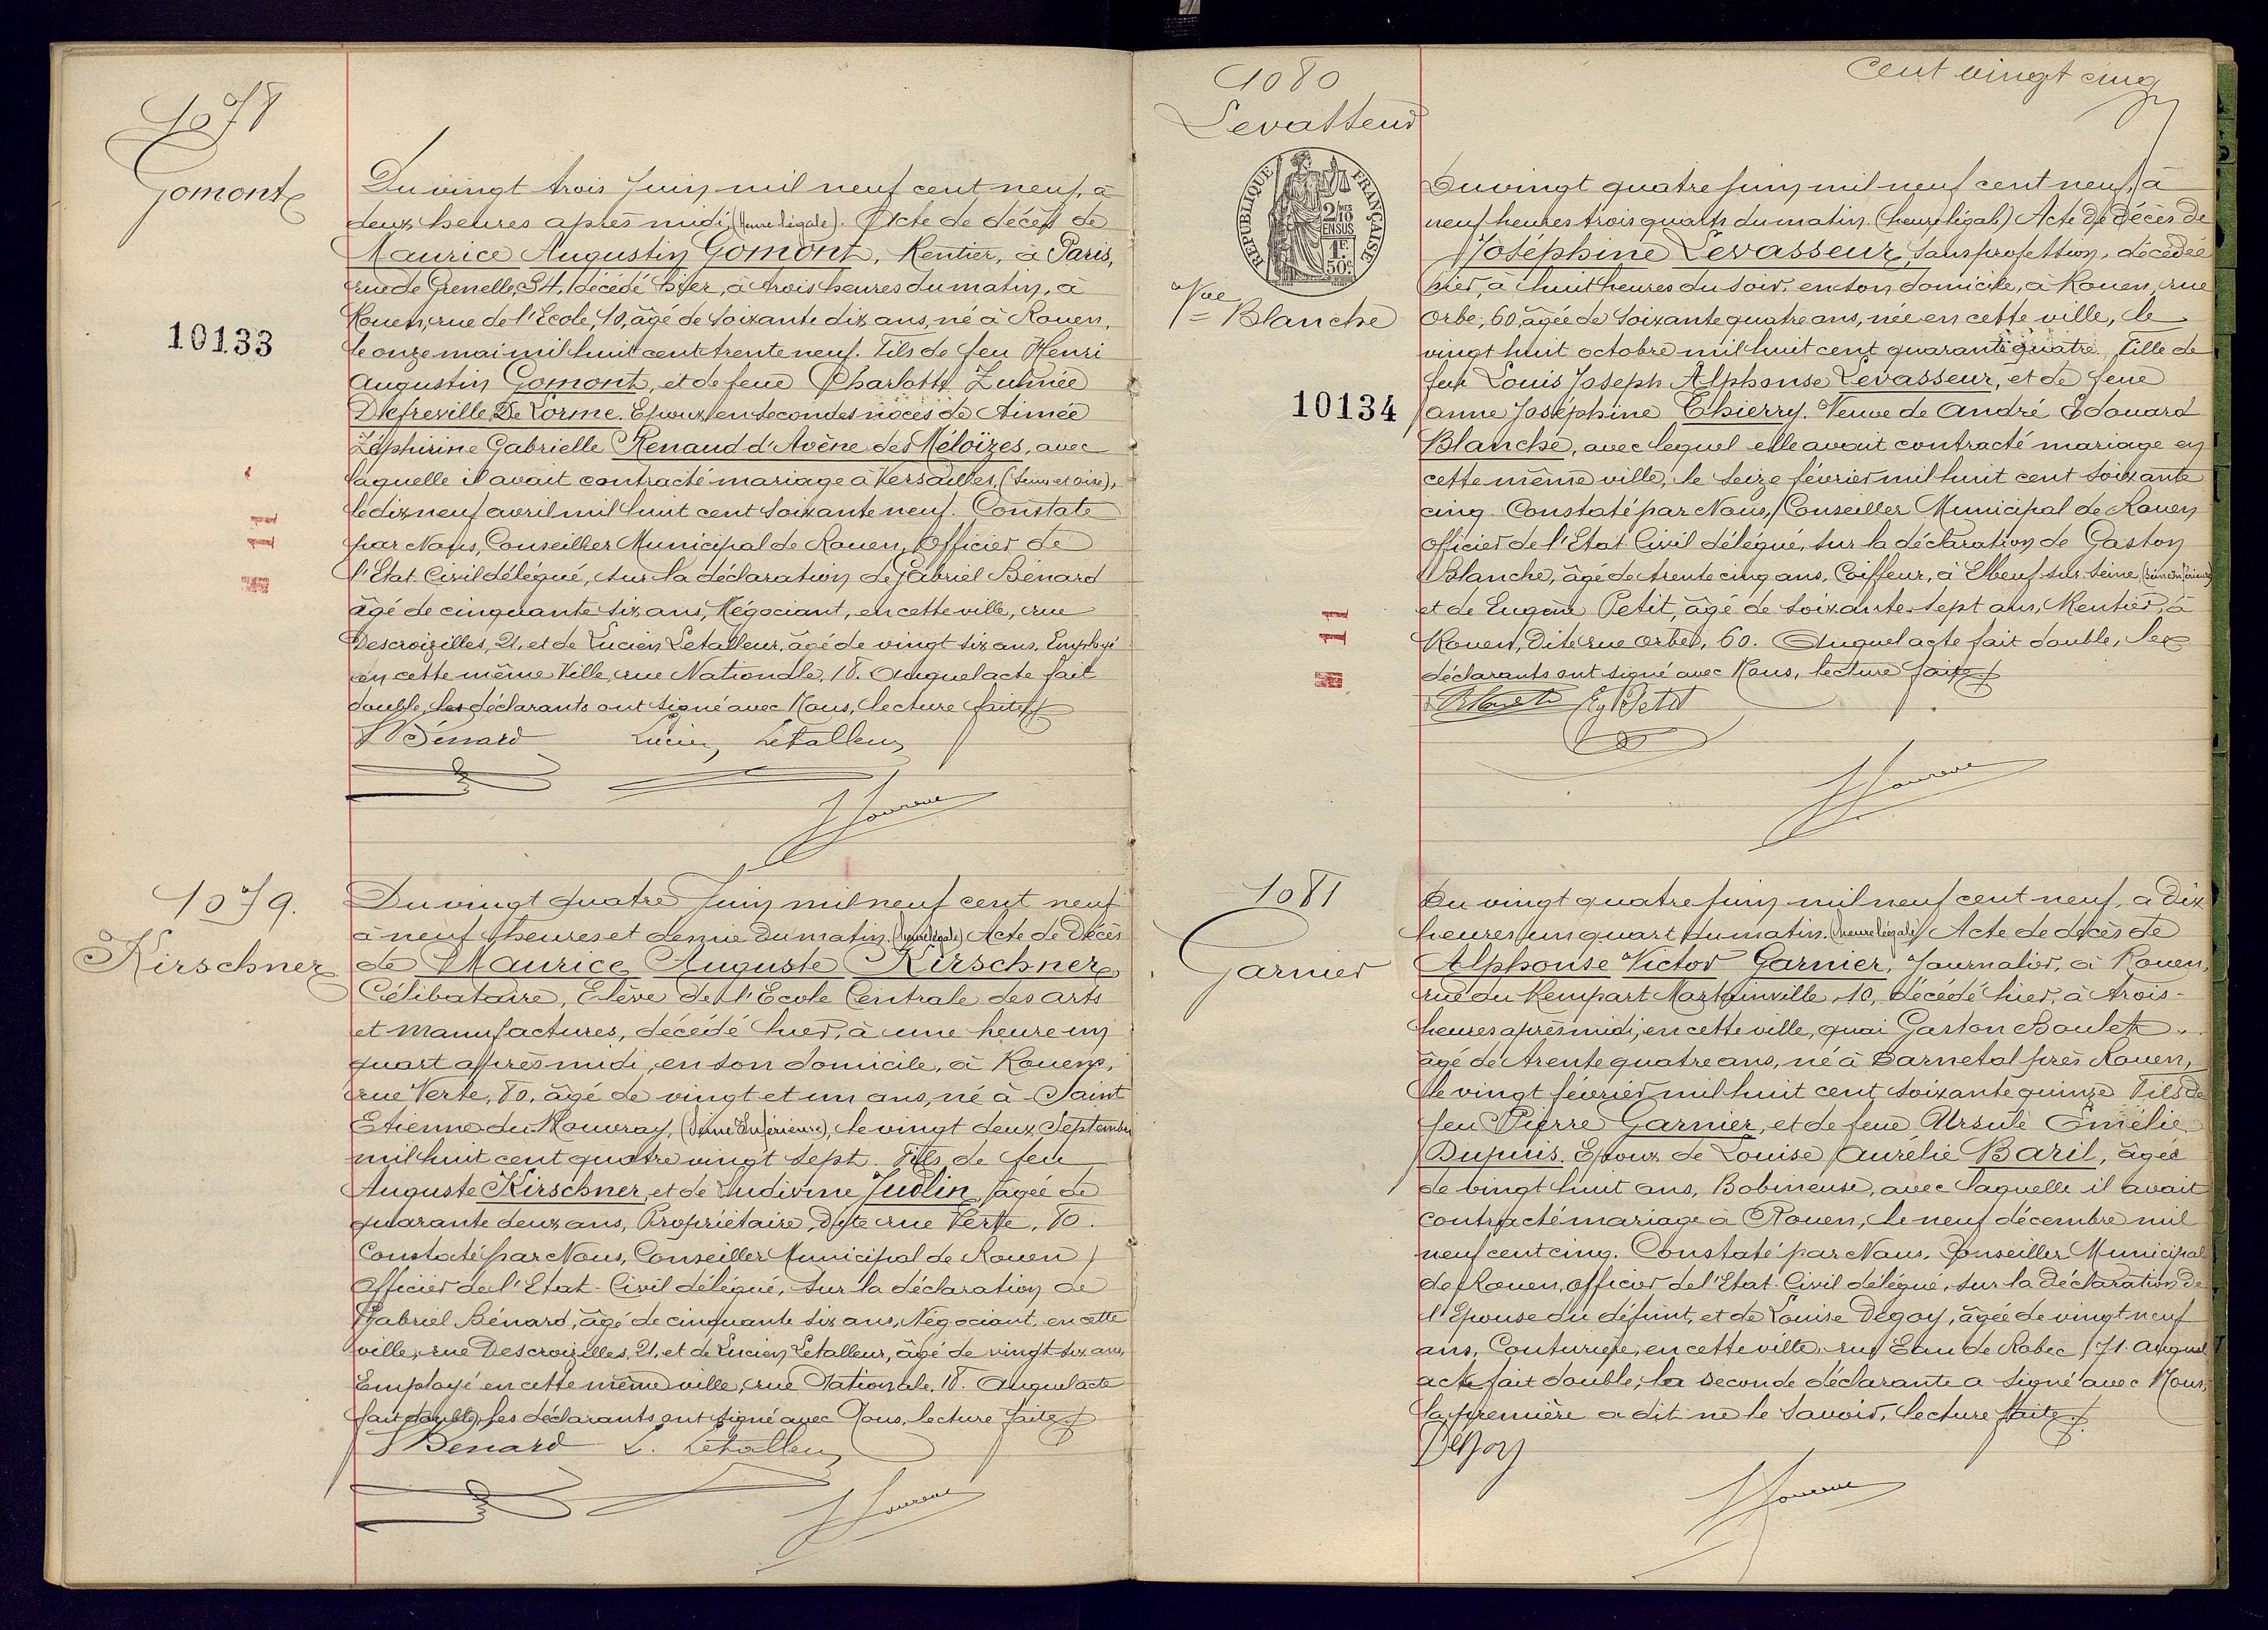 1078
Gomont
10133
11
Du vingt trois Juin mil neuf cent neuf, à
deux heures après midi, (heure légale). Acte de décès de
Maurice Augustin Gomont, Rentier, à Paris,
rue de Grenelle, 34, décédé hier, à trois heures du matin, à
Rouen, rue de l'Ecole, 10, âgé de soixante dix ans, né à Rouen,
le onze mai mil huit cent trente neuf. Fils de feu Henri
Augustin Gomont, et de feue Charlotte Zulmée
Diefreville De Lorme. Epoux en secondes noces de Aimée
Zéphirine Gabrielle Renaud d'Avène des Méloïzes, avec
laquelle il avait contracté mariage à Versailles, (Seine et oise),
le dix neuf avril mil huit cent soixante neuf. Constaté
par Nous, Conseiller Municipal de Rouen, Officier de
l'Etat Civil délégué, sur la déclaration de Gabriel Bénard
âgé de cinquante six ans, Négociant, en cette ville, rue
Descroizilles, 21, et de Lucien Letalleur, âgé de vingt six ans, Employé
en cette même Ville, rue Nationale, 18. Auquel acte fait
double, les déclarants ont signé avec Nous, lecture faite
Bénard Lucien Letalleur
1079.
Kirschner
Du vingt quatre Juin mil neuf cent neuf
à neuf heures et demie du matin, (heure légale) Acte de Décès
de Maurice Auguste Kirschner,
Célibataire, Elève de l'Ecole Centrale des arts
et manufactures, décédé hier, à une heure un
quart après midi, en son domicile, à Rouen,
rue Verte, 80, âgé de vingt et un ans, né à Saint
Etienne du Rouvray, (Seine Inférieure), le vingt deux Septembre
mil huit cent quatre vingt sept. Fils de feu
Auguste Kirschner, et de Ludivine Judlin, âgée de
quarante deux ans, Propriétaire, Dite rue Verte, 80.
Constaté par Nous, Conseiller Municipal de Rouen,
Officier de l'Etat-Civil délégué, sur la déclaration de
Gabriel Bénard, âgé de cinquante six ans, Négociant, en cette
ville, rue Descroizilles, 21, et de Lucien Letalleur, âgé de vingt six ans,
Employé en cette même ville, rue Nationale, 18. Auquel acte
fait double, les déclarants ont signé avec Nous, lecture faite
Benard L. Letalleur
cent vingt cinq
1080
Levasseur
RÉPUBLIQUE FRANÇAISE
2/10 EN SUS
1F 50c
Vve Blanche
10134
11
Du vingt quatre Juin mil neuf cent neuf, à
neuf heures trois quarts du matin. (heure légale) Acte de décès de
Joséphine Levasseur, sans profession, décédée
hier, à huit heures du soir, en son domicile, à Rouen, rue
Orbe, 60, âgée de soixante quatre ans, née en cette ville, le
vingt huit octobre mil huit cent quarante quatre. Fille de
feu Louis Joseph Alphonse Levasseur, et de feue
anne Joséphine Thierry. Veuve de André Edouard
Blanche, avec lequel elle avait contracté mariage en
cette même ville, le seize février mil huit cent soixante
cinq. Constaté par Nous, Conseiller Municipal de Rouen
Officier de l'Etat Civil délégué, sur la déclaration de Gaston
Blanche, âgé de trente cinq ans, Coiffeur, à Elbeuf sur Seine, (Seine Inférieure)
et de Eugène Petit, âgé de soixante sept ans, Rentier, à
Rouen, Dite rue Orbe, 60. Auquel acte fait double, les
déclarants ont signé avec Nous, lecture faite
Blanche Eug Petit
1081
Garnier
Du vingt quatre Juin mil neuf cent neuf, à Dix
heures un quart du matin. (heure légale) Acte de décès de
Alphonse Victor Garnier, Journalier, à Rouen,
rue du Rempart Martainville, 10, décédé hier, à trois
heures après midi, en cette ville, quai Gaston Boulet,
âgé de trente quatre ans, né à Darnetal près Rouen,
le vingt février mil huit cent soixante quinze Fils de
feu Pierre Garnier, et de feue Ursule Emélie
Dupuis. Epoux de Louise Aurélie Baril, âgée
de vingt huit ans, Bobineuse, avec laquelle il avait
contracté mariage à Rouen, le neuf décembre mil
neuf cent cinq. Constaté par Nous, Conseiller Municipal
de Rouen, Officier de l'Etat-Civil délégué, sur la déclaration de
l'Epouse du défunt, et de Louise Degoy, âgée de vingt neuf
ans, Couturière, en cette ville, rue Eau de Robec, 71. auquel
acte fait double, la seconde déclarante a signé avec Nous,
la première a dit ne le savoir, lecture faite
Degoy